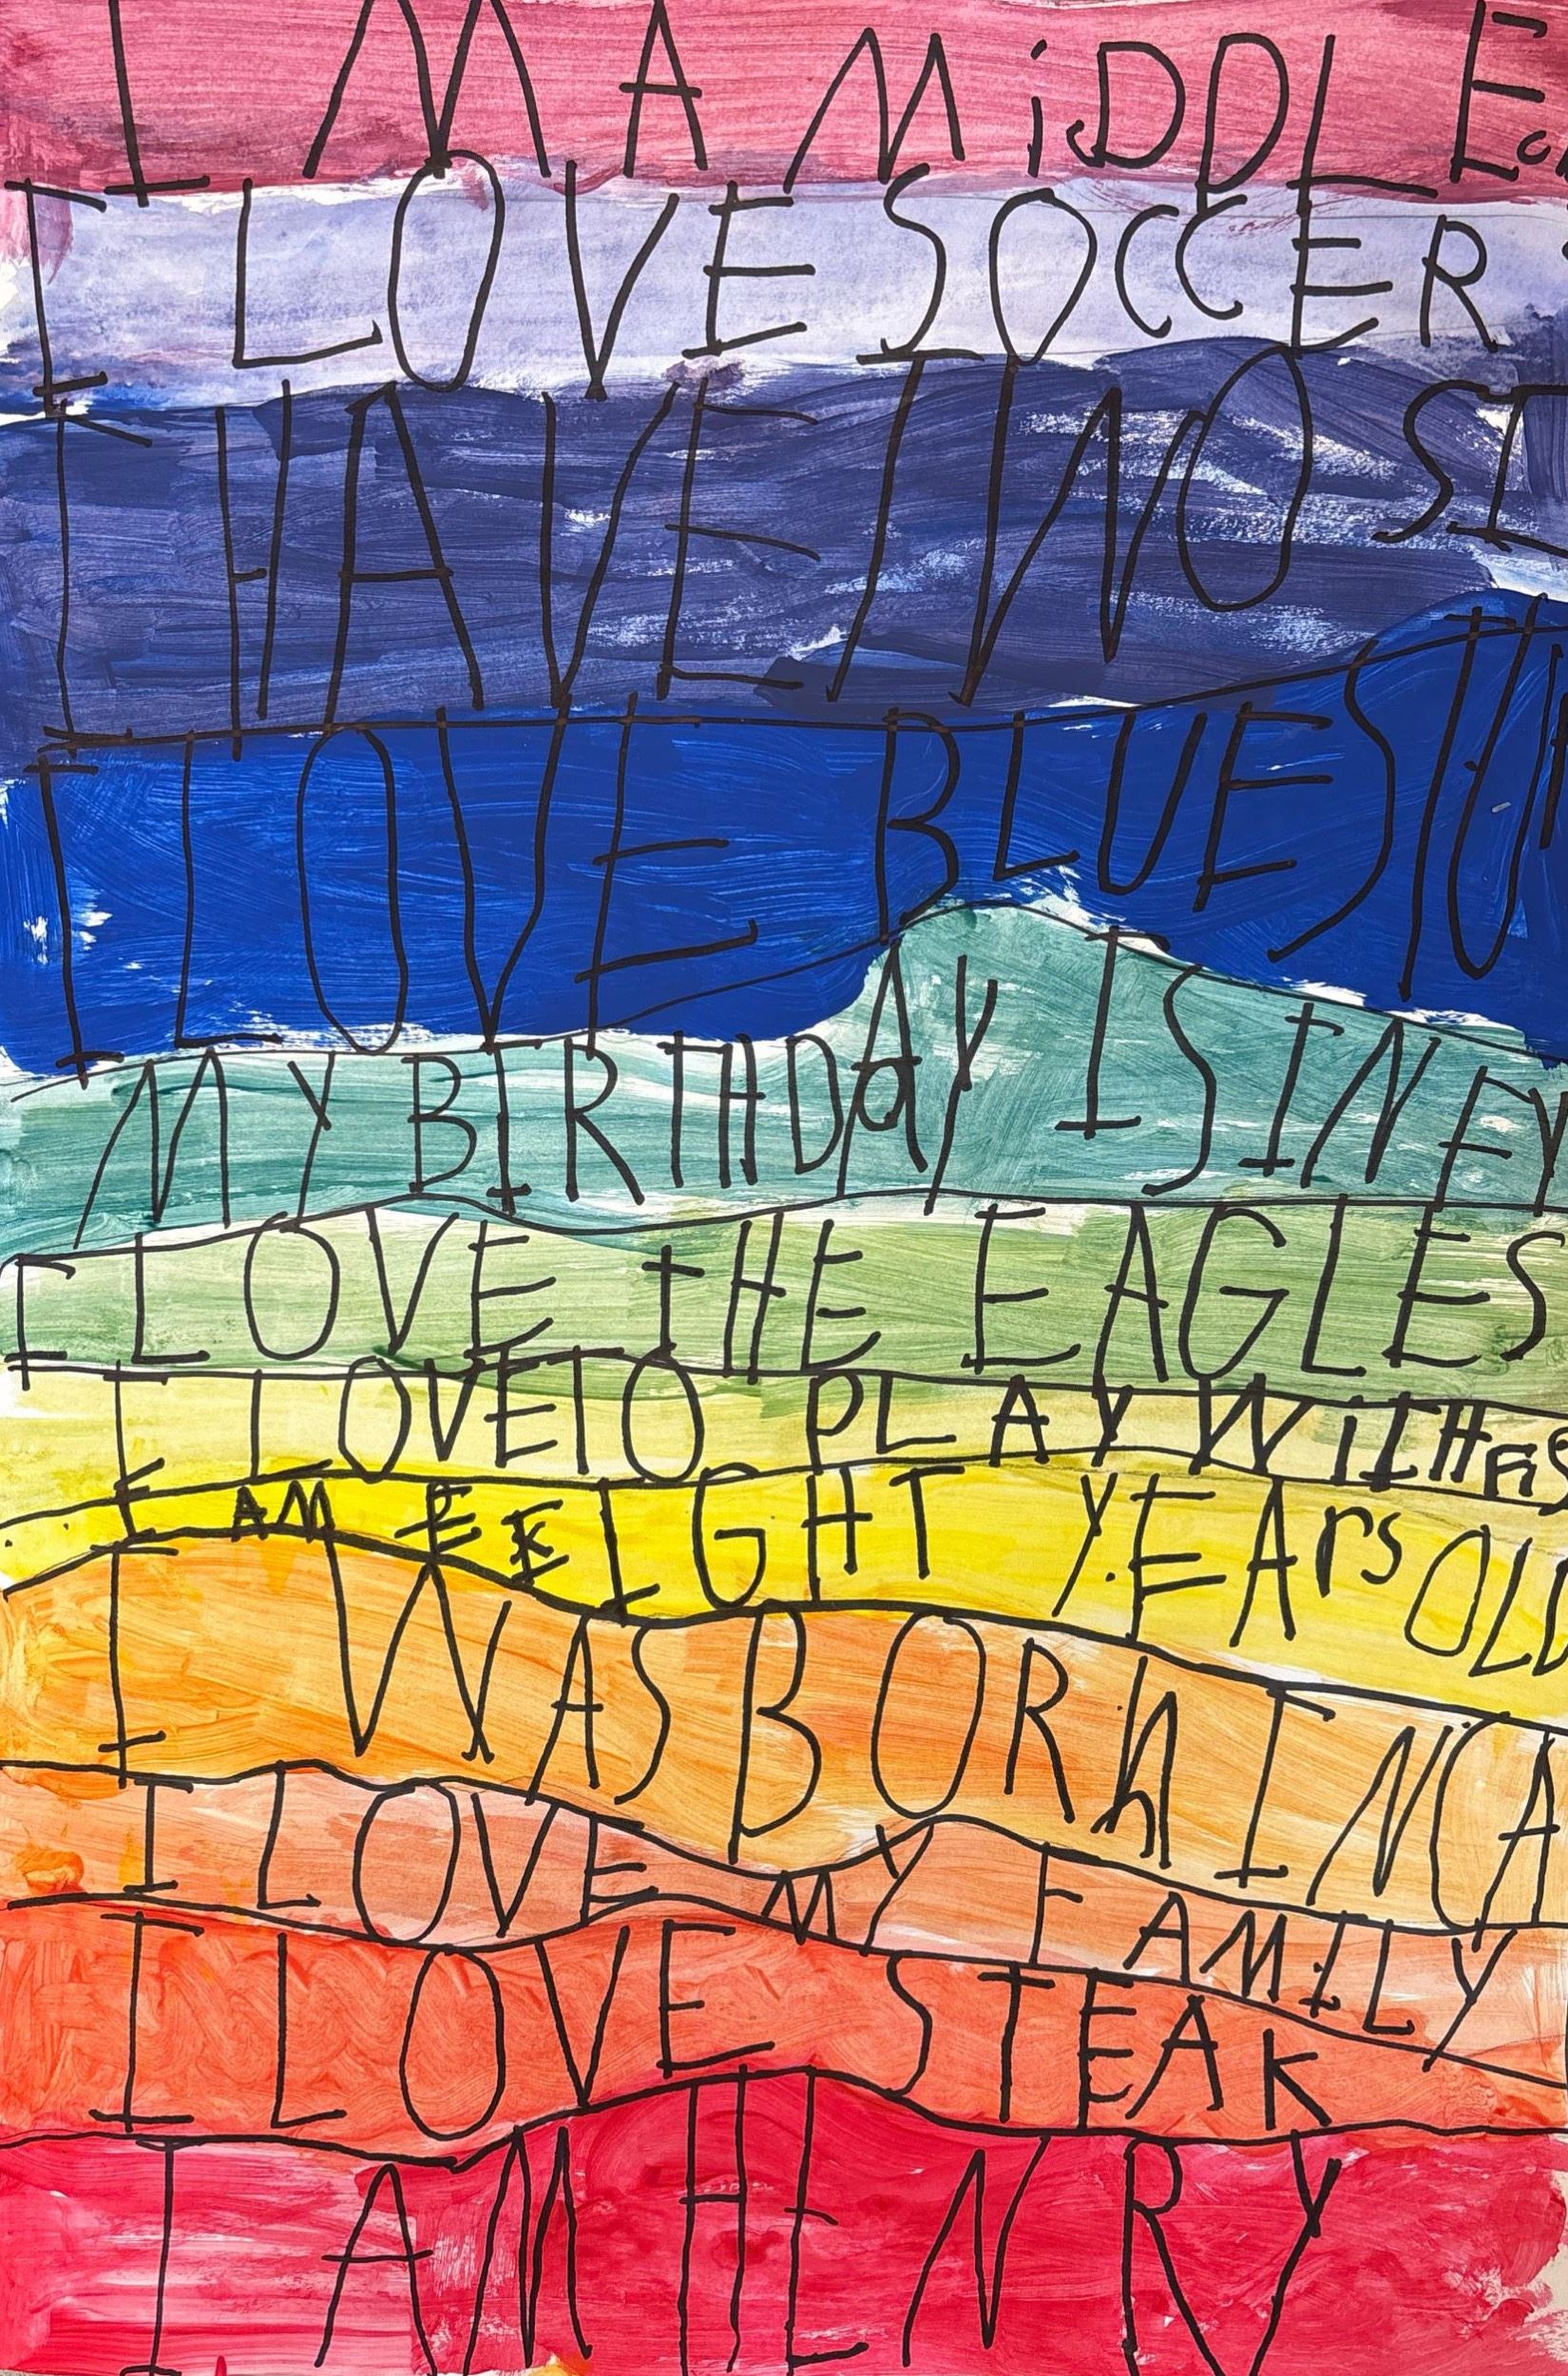 I M A MiDDLE
I LOVE SOCCER
I HAVE TWO SI
I LOVE BLUE
MY BIRTHDAY IS IN FY
I LOVE tHE EAGLES
I LOVE TO PLAY WITH
I AM EIGHT YEArS OLD
I WAS BORn IN CA
I LOVE MY FAMILY
I LOVE STEAK
I AM HENRY